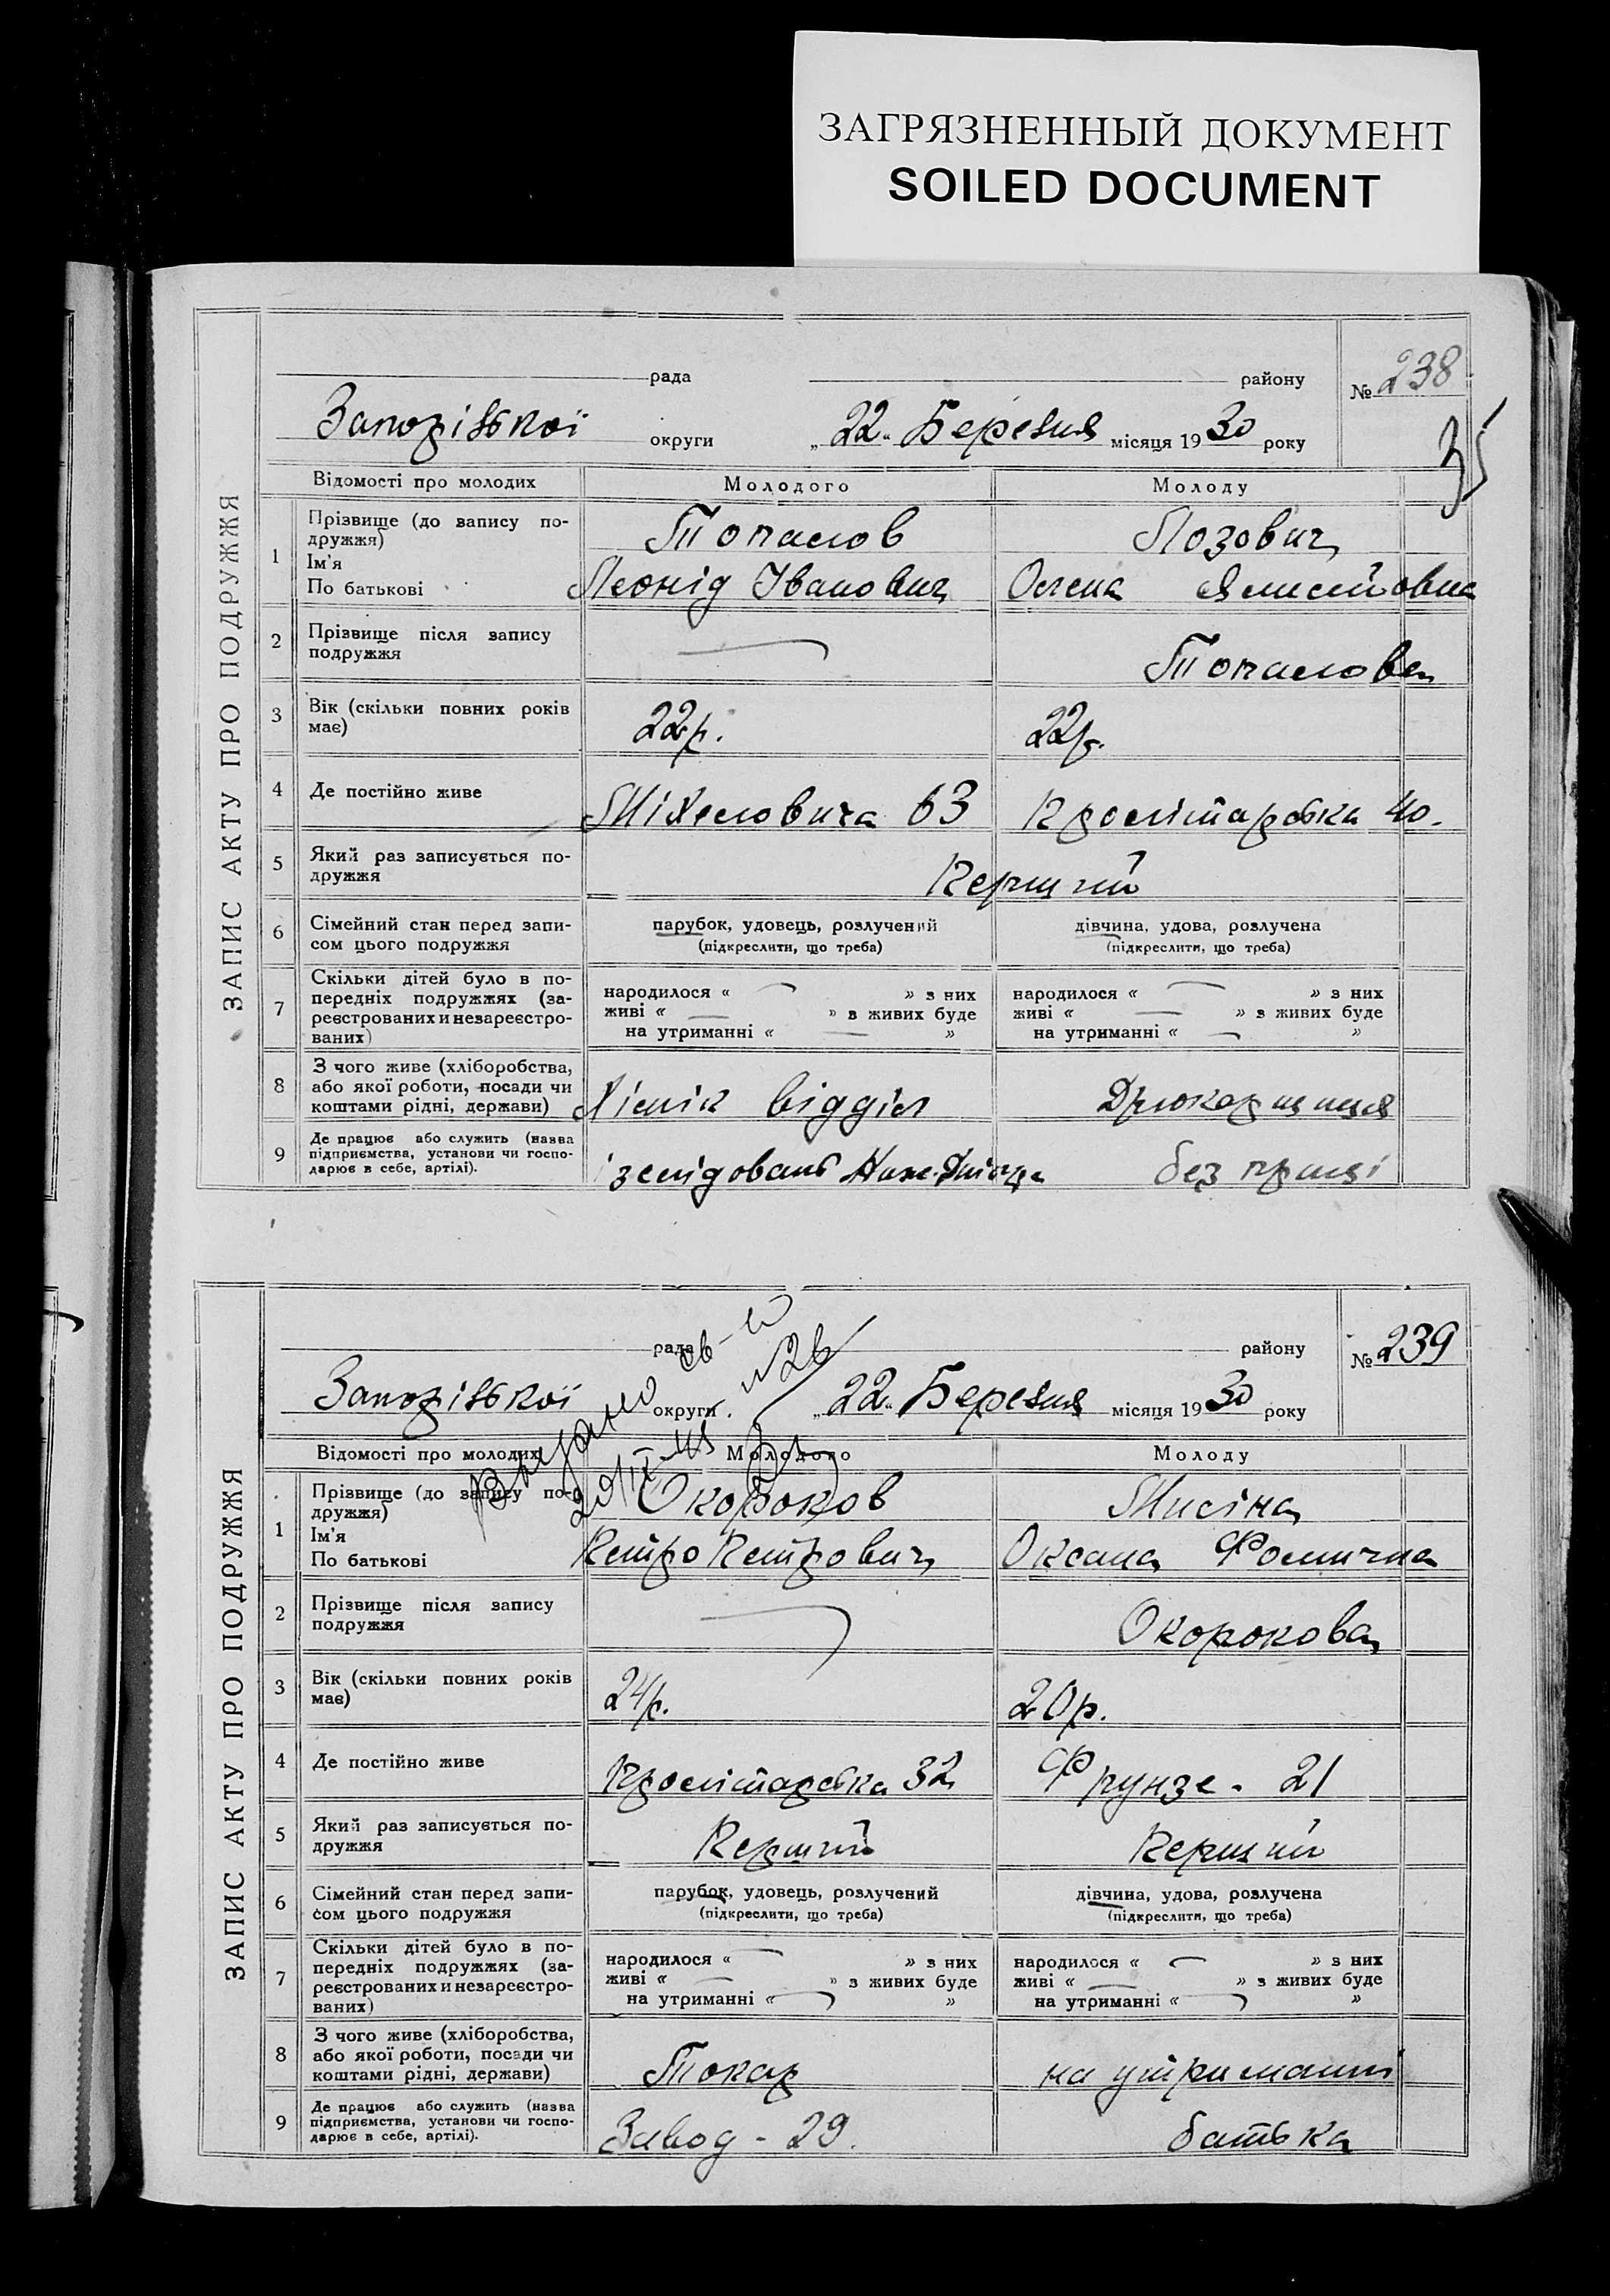 ЗАГРЯЗНЕННЫЙ ДОКУМЕНТ
SOILED DOCUMENT
ЗАПИС АКТУ ПРО ПОДРУЖЖЯ
рада району № 238
Запорізької округи „22“ Березня місяця 1930 року
35
Відомості про молодих Молодого Молоду
1 Прізвище (до запису по-
дружжя) Топалов Лозович
Ім'я
По батькові Леонід Іванович Олена
2 Прізвище після запису
подружжя — Топалова
3 Вік (скільки повних років
має) 22 р. 22 р.
4 Де постійно живе 63 Пролітарська 40.
5 Який раз записується по-
дружжя Перший
6 Сімейний стан перед запи-
сом цього подружжя
парубок, удовець, розлучений дівчина, удова, розлучена
(підкреслити, що треба) (підкреслити, що треба)
7 Скільки дітей було в по-
передніх подружжях (за-
реєстрованих и незареєстро-
ваних)
народилося « — » з них народилося « — » з них
живі « — » з живих буде живі « — » з живих буде
на утриманні « — » на утриманні « — »
8 З чого живе (хліборобства,
або якої роботи, посади чи
коштами рідні, держави) Хімік відділ Друкарщиця
9 Де працює або служить (назва
підприємства, установи чи госпо-
дарює в себе, артілі). без праці
ЗАПИС АКТУ ПРО ПОДРУЖЖЯ
рада району № 239
Запорізької округи „22“ Березня місяця 1930 року
Видано св-во
Відомості про молодих Молодого Молоду
1 Прізвище (до запису по-
дружжя) Окороков Мисіна
Ім'я
По батькові Петро Петрович Оксана Фомична
2 Прізвище після запису
подружжя — Окорокова
3 Вік (скільки повних років
має) 24 р. 20 р.
4 Де постійно живе Пролітарська 32 Фрунзе - 21
5 Який раз записується по-
дружжя Перший Перший
6 Сімейний стан перед запи-
сом цього подружжя
парубок, удовець, розлучений дівчина, удова, розлучена
(підкреслити, що треба) (підкреслити, що треба)
7 Скільки дітей було в по-
передніх подружжях (за-
реєстрованих и незареєстро-
ваних)
народилося « — » з них народилося « — » з них
живі « — » з живих буде живі « — » з живих буде
на утриманні « — » на утриманні « — »
8 З чого живе (хліборобства,
або якої роботи, посади чи
коштами рідні, держави) Токар на утриманні
9 Де працює або служить (назва
підприємства, установи чи госпо-
дарює в себе, артілі). Завод - 29. батька